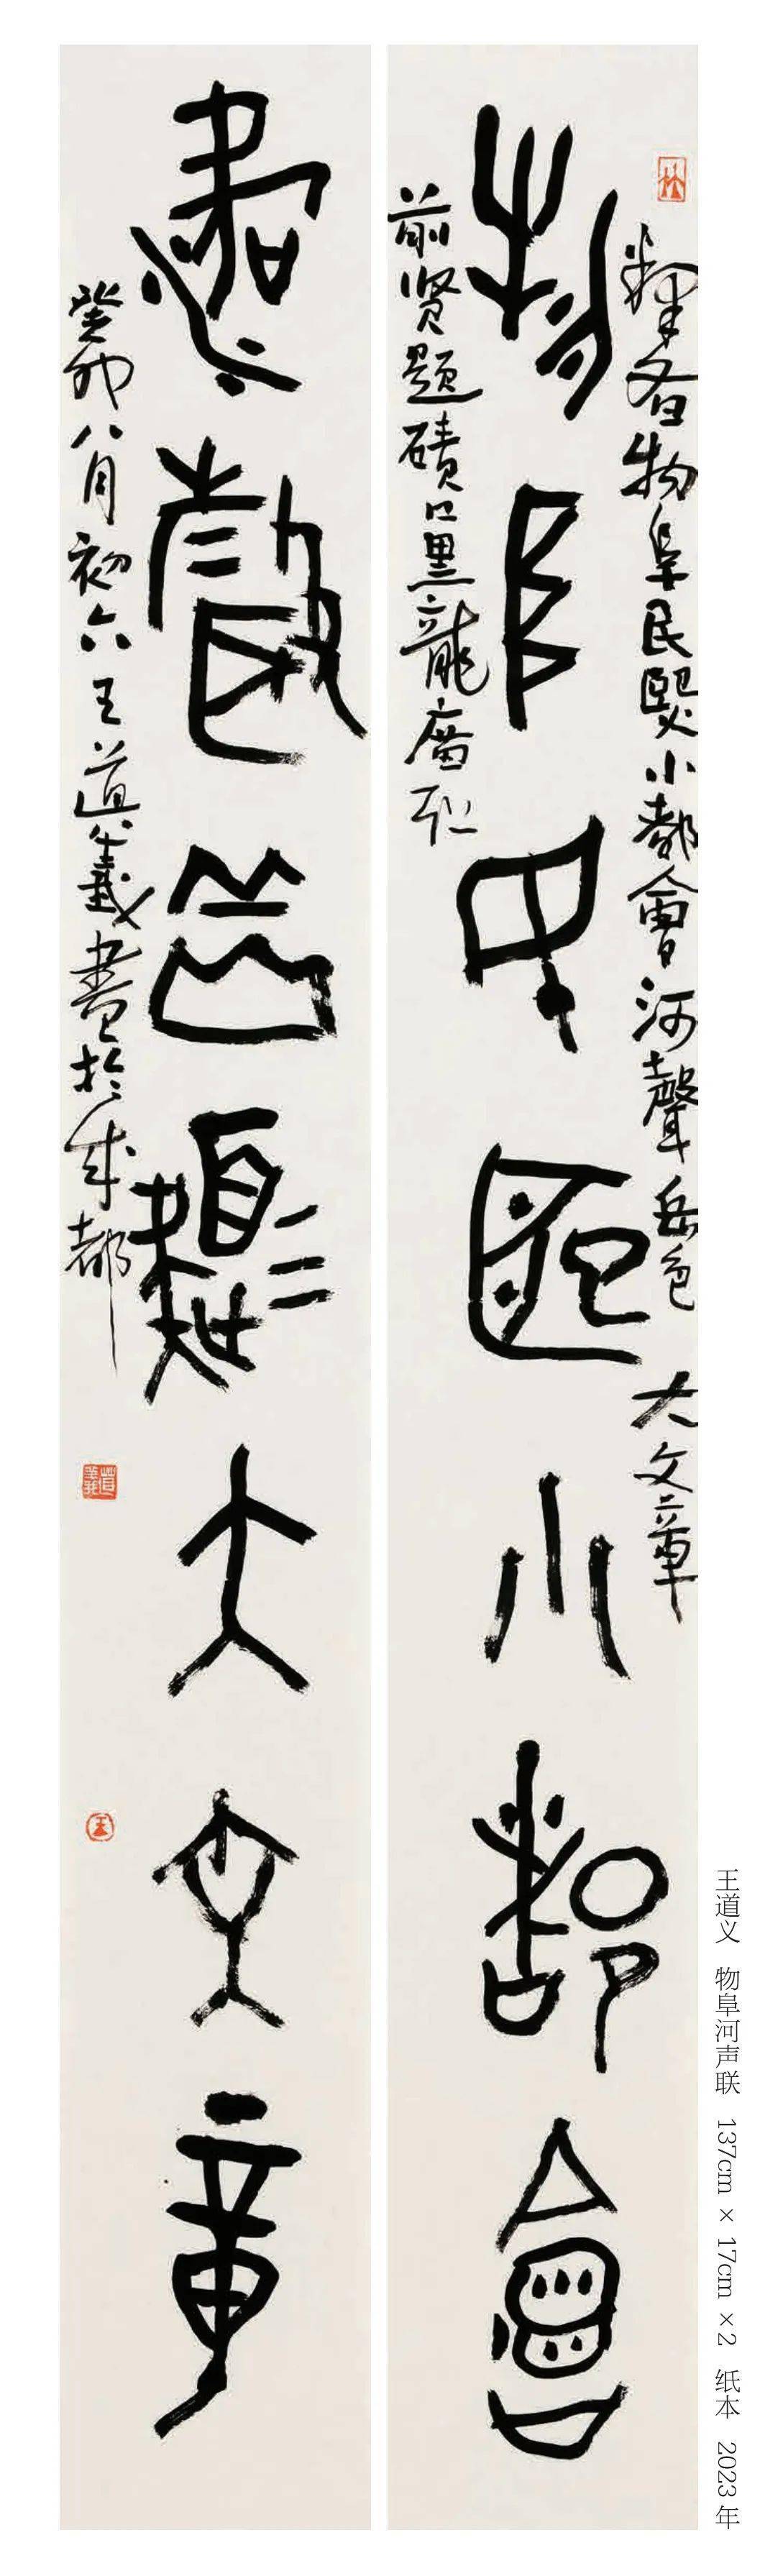 釋文曰物阜民熙小都會河聲岳色大文章
物阜民熙小都會
前贤题碛口黑龍廟联
河聲岳色大文章
癸卯八月初六王道義書於成都
道義
王
王道义 物阜河声联 137cm × 17cm ×2 纸本 2023年